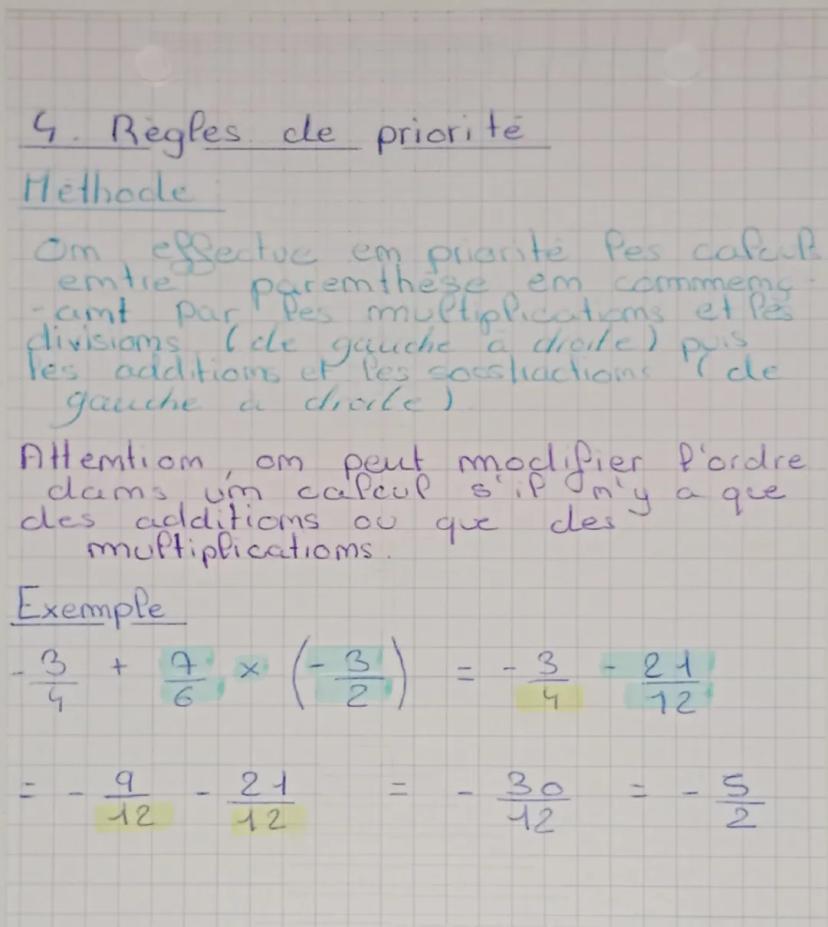 4. Règles de priorité
Méthode
On effectue en priorité les calculs
entre parenthèse en commenç-
-ant par les multiplications et les
divisions (de gauche à droite) puis
les additions et les soustractions (de
gauche à droite)
Attention, on peut modifier l'ordre
dans un calcul s'il n'y a que
des additions ou que des
multiplications.
Exemple
-3/4 + 7/6 × (-3/2) = -3/4 - 21/12
= -9/12 - 21/12 = -30/12 = -5/2